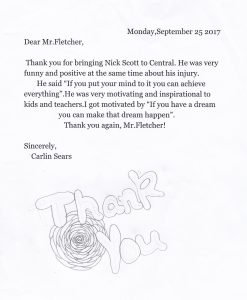 Monday,September 25 2017
Dear Mr.Fletcher,
Thank you for bringing Nick Scott to Central. He was very
funny and positive at the same time about his injury.
He said “If you put your mind to it you can achieve
everything”.He was very motivating and inspirational to
kids and teachers.I got motivated by “If you have a dream
you can make that dream happen”.
Thank you again, Mr.Fletcher!
Sincerely,
Carlin Sears
Thank
You